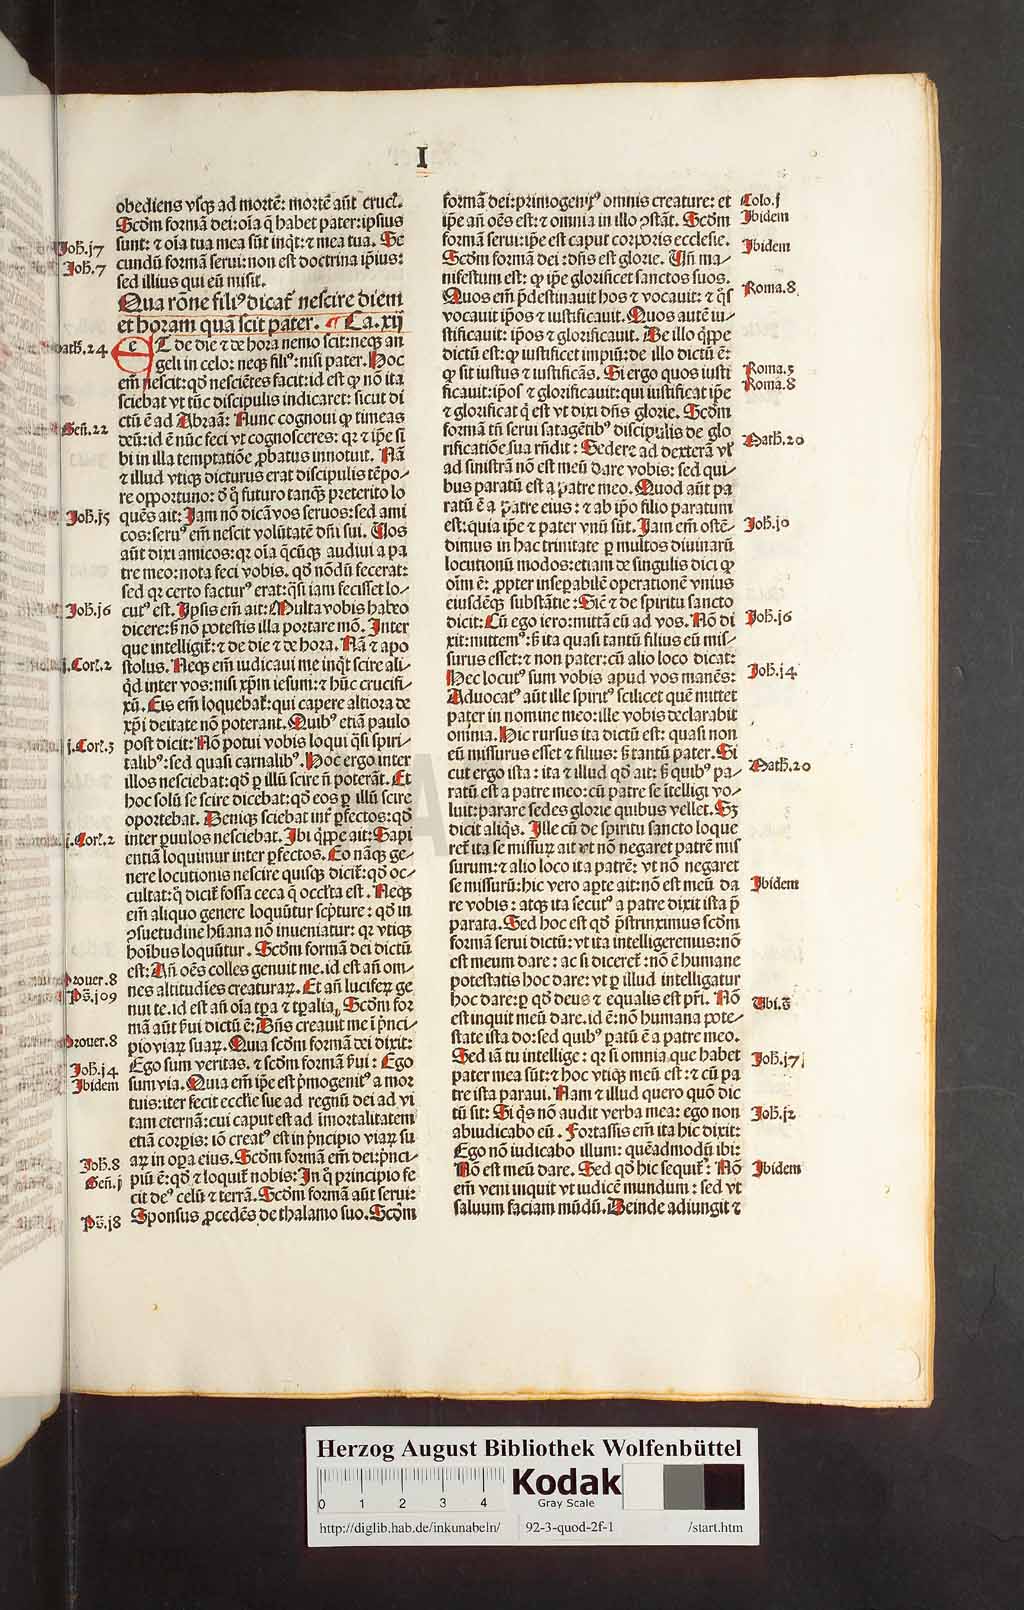 I
obediens vsqꝫ ad mortē: mortē aūt cruc͛.
Scd̄m formā dei: oīa q̄ habet pater: ipsius
sunt: ⁊ oīa tua mea sūt inq̄t: ⁊ mea tua. Se
cundū formā serui: non est doctrina ip̄ius:
sed illius qui eū misit.
Qua rōne filiꝰ dicat᷑ nescire diem
et horam quā scit pater. ¶ Ca. xij
ET de die ⁊ de hora nemo scit: neqꝫ an
geli in celo: neqꝫ filiꝰ: nisi pater. Hoc
em̄ nescit: qd̄ nesciētes facit: id est ꝙ nō ita
sciebat vt tūc discipulis indicaret: sicut di
ctū ē ad Abraā: Nunc cognoui ꝙ timeas
deū: id ē nūc feci vt cognosceres: qꝛ ⁊ ip̄e si
bi in illa temptatiōe ꝓbatus innotuit. Nā
⁊ illud vtiqꝫ dicturus erat discipulis tēpo⸗
re opportuno: d̄ q̄ futuro tanqꝫ preterito lo
quēs ait: Jam nō dicā vos seruos: sed ami
cos: seruꝰ em̄ nescit volūtatē dn̄i sui. Uos
aūt dixi amicos: qꝛ oīa q̄cūqꝫ audiui a pa
tre meo: nota feci vobis. qd̄ nōdū fecerat:
sed qꝛ certo facturꝰ erat: q̄si iam fecisset lo⸗
cutꝰ est. Jpsis em̄ ait: Multa vobis habeo
dicere: sꝫ nō potestis illa portare mō. Jnter
que intelligit᷑: ⁊ de die ⁊ de hora. Nā ⁊ apo
stolus. Neqꝫ em̄ iudicaui me inq̄t scire ali⸗
q̄d inter vos: nisi xp̄m iesum: ⁊ hūc crucifi⸗
xū. Eis em̄ loquebat᷑: qui capere altiora de
xp̄i deitate nō poterant. Quibꝰ etiā paulo
post dicit: Nō potui vobis loqui q̄si spiri⸗
talibꝰ: sed quasi carnalibꝰ. Hoc ergo inter
illos nesciebat: qd̄ ꝑ illū scire n̄ poterāt. Et
hoc solū se scire dicebat: qd̄ eos ꝑ illū scire
oportebat. Deniqꝫ sciebat int᷑ ꝑfectos: qd̄
inter ꝑuulos nesciebat. Jbi q̄ppe ait: Sapi
entiā loquimur inter ꝑfectos. Eo nāqꝫ ge⸗
nere locutionis nescire quisqꝫ dicit᷑: qd̄ oc⸗
cultat: q̄ dicit᷑ fossa ceca q̄ occl̓ta est. Neqꝫ
em̄ aliquo genere loquūtur scp̄ture: qd̄ in
ꝯsuetudine hūana nō inueniatur: qꝛ vtiqꝫ
hoībus loquūtur. Scd̄m formā dei dictū
est: Añ oēs colles genuit me. id est añ om⸗
nes altitudīes creaturaꝝ. Et añ luciferꝫ ge
nui te. id est añ oīa tp̄a ⁊ tp̄alia. Scd̄m for
mā aūt ẜui dictū ē: Dn̄s creauit me ī p̄nci⸗
pio viaꝝ suaꝝ. Quia scd̄m formā dei dixit:
Ego sum veritas. ⁊ scd̄m formā ẜui: Ego
sum via. Quia em̄ ip̄e est p̄mogenitꝰ a mor
tuis: iter fecit eccl̓ie sue ad regnū dei ad vi
tam eternā: cui caput est ad imortalitatem
etiā corꝑis: iō creatꝰ est in p̄ncipio viaꝝ su
aꝝ in oꝑa eius. Scd̄m formā em̄ dei: p̄nci⸗
piū ē: qd̄ ⁊ loquit᷑ nobis: Jn q̄ principio fe
cit deꝰ celū ⁊ terrā. Scd̄m formā aūt serui:
Sponsus ꝓcedēs de thalamo suo. Scd̄m
Joh̄. j7
Joh̄. 7
ath̄. 24
Gen̄. 22
Joh̄. j5
Joh̄. j6
j. Cor̄. 2
j. Cor̄. 3
j. Cor̄. 2
Prouer. 8
Ps̄. j09
Prouer. 8
Joh̄. j4
Jbidem
Joh̄. 8
Gen̄. j
Ps̄. j8
formā dei: primogenitꝰ omnis creature: et
ip̄e añ oēs est: ⁊ omnia in illo ꝯstāt. Scd̄m
formā serui: ip̄e est caput corporis ecclesie.
Scd̄m formā dei: dn̄s est glorie. Uñ ma⸗
nifestum est: ꝙ ip̄e glorificet sanctos suos.
Quos em̄ p̄destinauit hos ⁊ vocauit: ⁊ q̄s
vocauit ip̄os ⁊ iustificauit. Quos autē iu⸗
stificauit: ip̄os ⁊ glorificauit. De illo q̄ppe
dictū est: ꝙ iustificet impiū: de illo dictū ē:
ꝙ sit iustus ⁊ iustificās. Si ergo quos iusti
ficauit: ip̄os ⁊ glorificauit: qui iustificat ip̄e
⁊ glorificat q̄ est vt dixi dn̄s glorie. Scd̄m
formā tn̄ serui satagētibꝰ discipulis de glo
rificatiōe sua rn̄dit: Sedere ad dexterā vl̓
ad sinistrā nō est meū dare vobis: sed qui⸗
bus paratū est a patre meo. Quod aūt pa
ratū ē a patre eius: ⁊ ab ip̄o filio paratum
est: quia ip̄e ⁊ pater vnū sūt. Jam em̄ ostē⸗
dimus in hac trinitate ꝑ multos diuinarū
locutionū modos: etiam de singulis dici ꝙ
oīm ē: ꝓpter insepabilē operationē vnius
eiusdēqꝫ substātie: Sic̄ ⁊ de spiritu sancto
dicit: Cū ego iero: mittā eū ad vos. Nō di
xit: mittemꝰ: sꝫ ita quasi tantū filius eū mis⸗
surus esset: ⁊ non pater: cū alio loco dicat:
Hec locutꝰ sum vobis apud vos manēs:
Aduocatꝰ aūt ille spiritꝰ scilicet quē mittet
pater in nomine meo: ille vobis declarabit
omnia. Hic rursus ita dictū est: quasi non
eū missurus esset ⁊ filius: sꝫ tantū pater. Si
cut ergo ista: ita ⁊ illud qd̄ ait: sꝫ quibꝰ pa⸗
ratū est a patre meo: cū patre se ītelligi vo⸗
luit: parare sedes glorie quibus vellet. Sꝫ
dicit aliq̄s. Jlle cū de spiritu sancto loque
ret᷑ ita se missuꝝ ait vt nō negaret patrē mis
surum: ⁊ alio loco ita patrē: vt nō negaret
se missurū: hic vero aꝑte ait: nō est meū da
re vobis: atqꝫ ita secutꝰ a patre dixit ista p̄
parata. Sed hoc est qd̄ p̄strinximus scd̄m
formā serui dictū: vt ita intelligeremus: nō
est meum dare: ac si diceret᷑: nō ē humane
potestatis hoc dare: vt ꝑ illud intelligatur
hoc dare: ꝑ qd̄ deus ⁊ equalis est pr̄i. Nō
est inquit meū dare. id ē: nō humana pote⸗
state ista do: sed quibꝰ patū ē a patre meo.
Sed iā tu intellige: qꝛ si omnia que habet
pater mea sūt: ⁊ hoc vtiqꝫ meū est: ⁊ cū pa
tre ista paraui. Nam ⁊ illud quero quō dic
tū sit: Si q̄s nō audit verba mea: ego non
abiudicabo eū. Fortassis em̄ ita hic dixit:
Ego nō iudicabo illum: quēadmodū ibi:
Nō est meū dare. Sed qd̄ hic sequit᷑: Nō
em̄ veni inquit vt iudicē mundum: sed vt
saluum faciam mūdū. Deinde adiungit ⁊
Colo. j
Jbidem
Jbidem
Roma. 8
Roma. 3
Roma. 8
Math̄. 20
Joh̄. j0
Joh̄. j6
Joh̄. j4
Math̄. 20
Jbidem
Ubi. s̄
Joh̄. j7
Joh̄. j2
Jbidem
Herzog August Bibliothek Wolfenbüttel
0 1 2 3 4
Kodak
Gray Scale
http://diglib.hab.de/inkunabeln/ 92-3-quod-2f-1 /start.htm